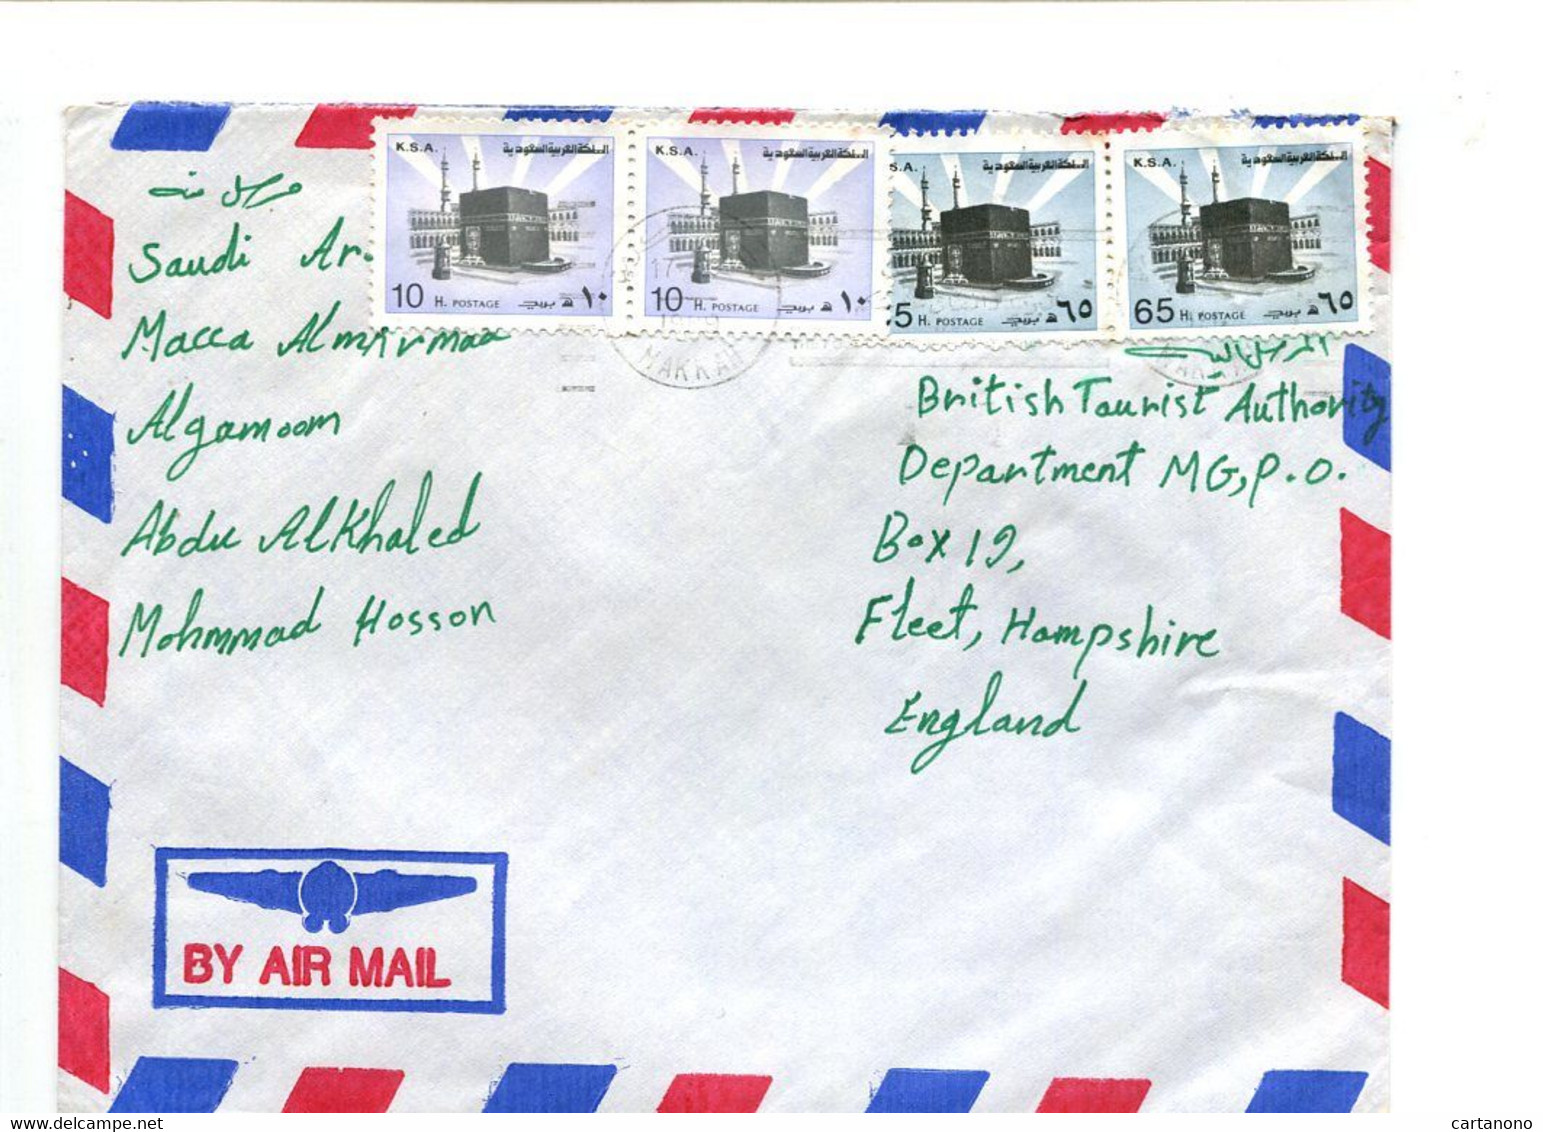 K.S.A. المملكة العربية السعودية
10 H. POSTAGE بريد ه ١٠
K.S.A. المملكة العربية السعودية
10 H. POSTAGE بريد ه ١٠
S.A. المملكة العربية السعودية
5 H. POSTAGE بريد ه ٦٥
K.S.A. المملكة العربية السعودية
65 H. POSTAGE بريد ه ٦٥
17
MAKKAH
Saudi Ar
Macca Almkrmaa
Algamoom
Abdu Alkhaled
Mohmmad Hosson
British Tourist Authority
Department MG, P.O.
Box 19,
Fleet, Hampshire
England
BY AIR MAIL
cartanono